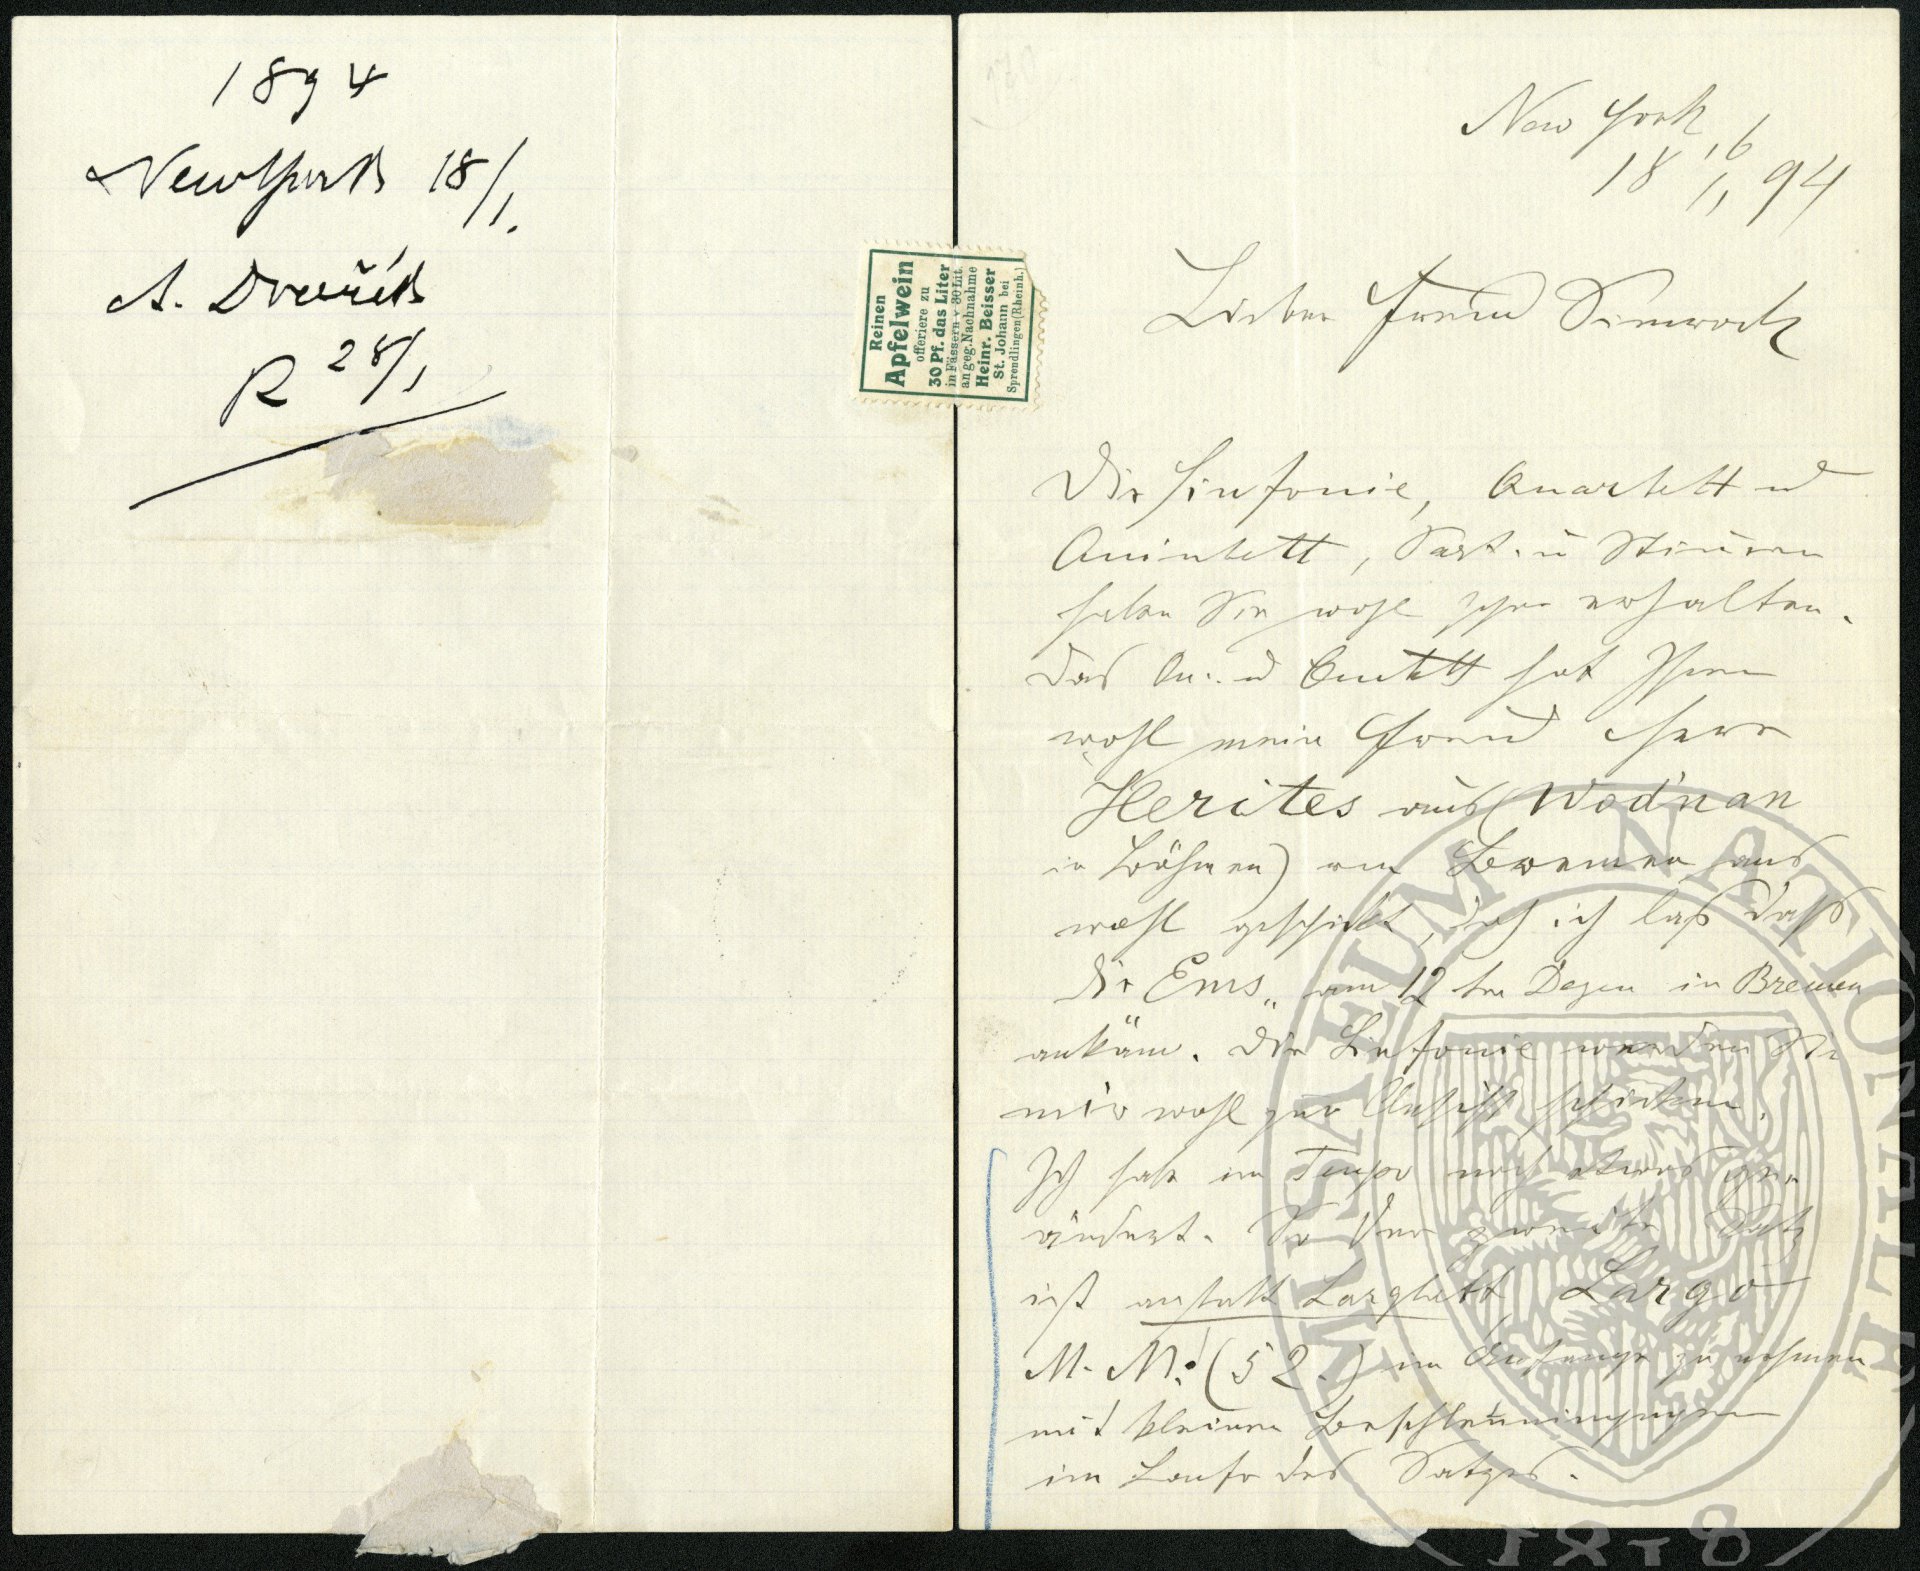 1894
NewYork 18/1.
A. Dvořák
R 28/1
Reinen
Apfelwein
offeriere zu
30 Pf. das Liter
in Fässern v. 30 Lit.
an geg. Nachnahme
Heinr. Beisser
St. Johann bei
Sprendlingen (Rheinh.)
New York
18 16/1, 94
Lieber Freund Simrock
Die Sinfonie, Quartett u
Quintett, Part. u Stimmen
haben Sie wohl schon erhalten.
Das Qu.. u Quintett hat Ihnen
wohl mein Freund Herr
Herites aus (Wodňan
in Böhmen) von Bremen aus
wohl geschickt, doch ich las daß
die Ems„ am 12 ten in Bremen
ankäm. Die Sinfonie werden Sie
mir wohl zur Ansicht schicken.
Ich habe im Tempo noch etwas ge
ändert. So der zweite Satz
ist anstatt Larghetto Largo
M. M. (52.) im Anfange zu nehmen
mit kleinen Beschleunigungen
im Laufe des Satzes.
MUSAEUM NATIONALE
1818